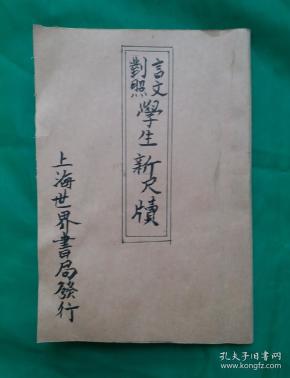 言文
對照
學生新尺牘
上海世界書局發行
孔夫子旧书网
kongfz.com